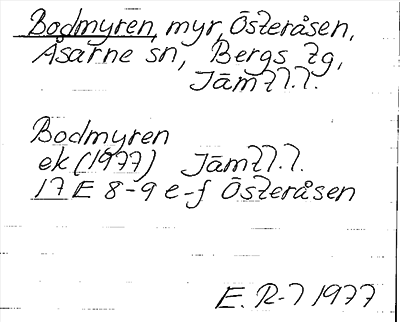 Bodmyren, myr, Österåsen,
Åsarne sn, Bergs tg,
Jämtl.l.
Bodmyren
ek (1977) Jämtl.l.
17 E 8-9 e-f Österåsen
E. R-l 1977